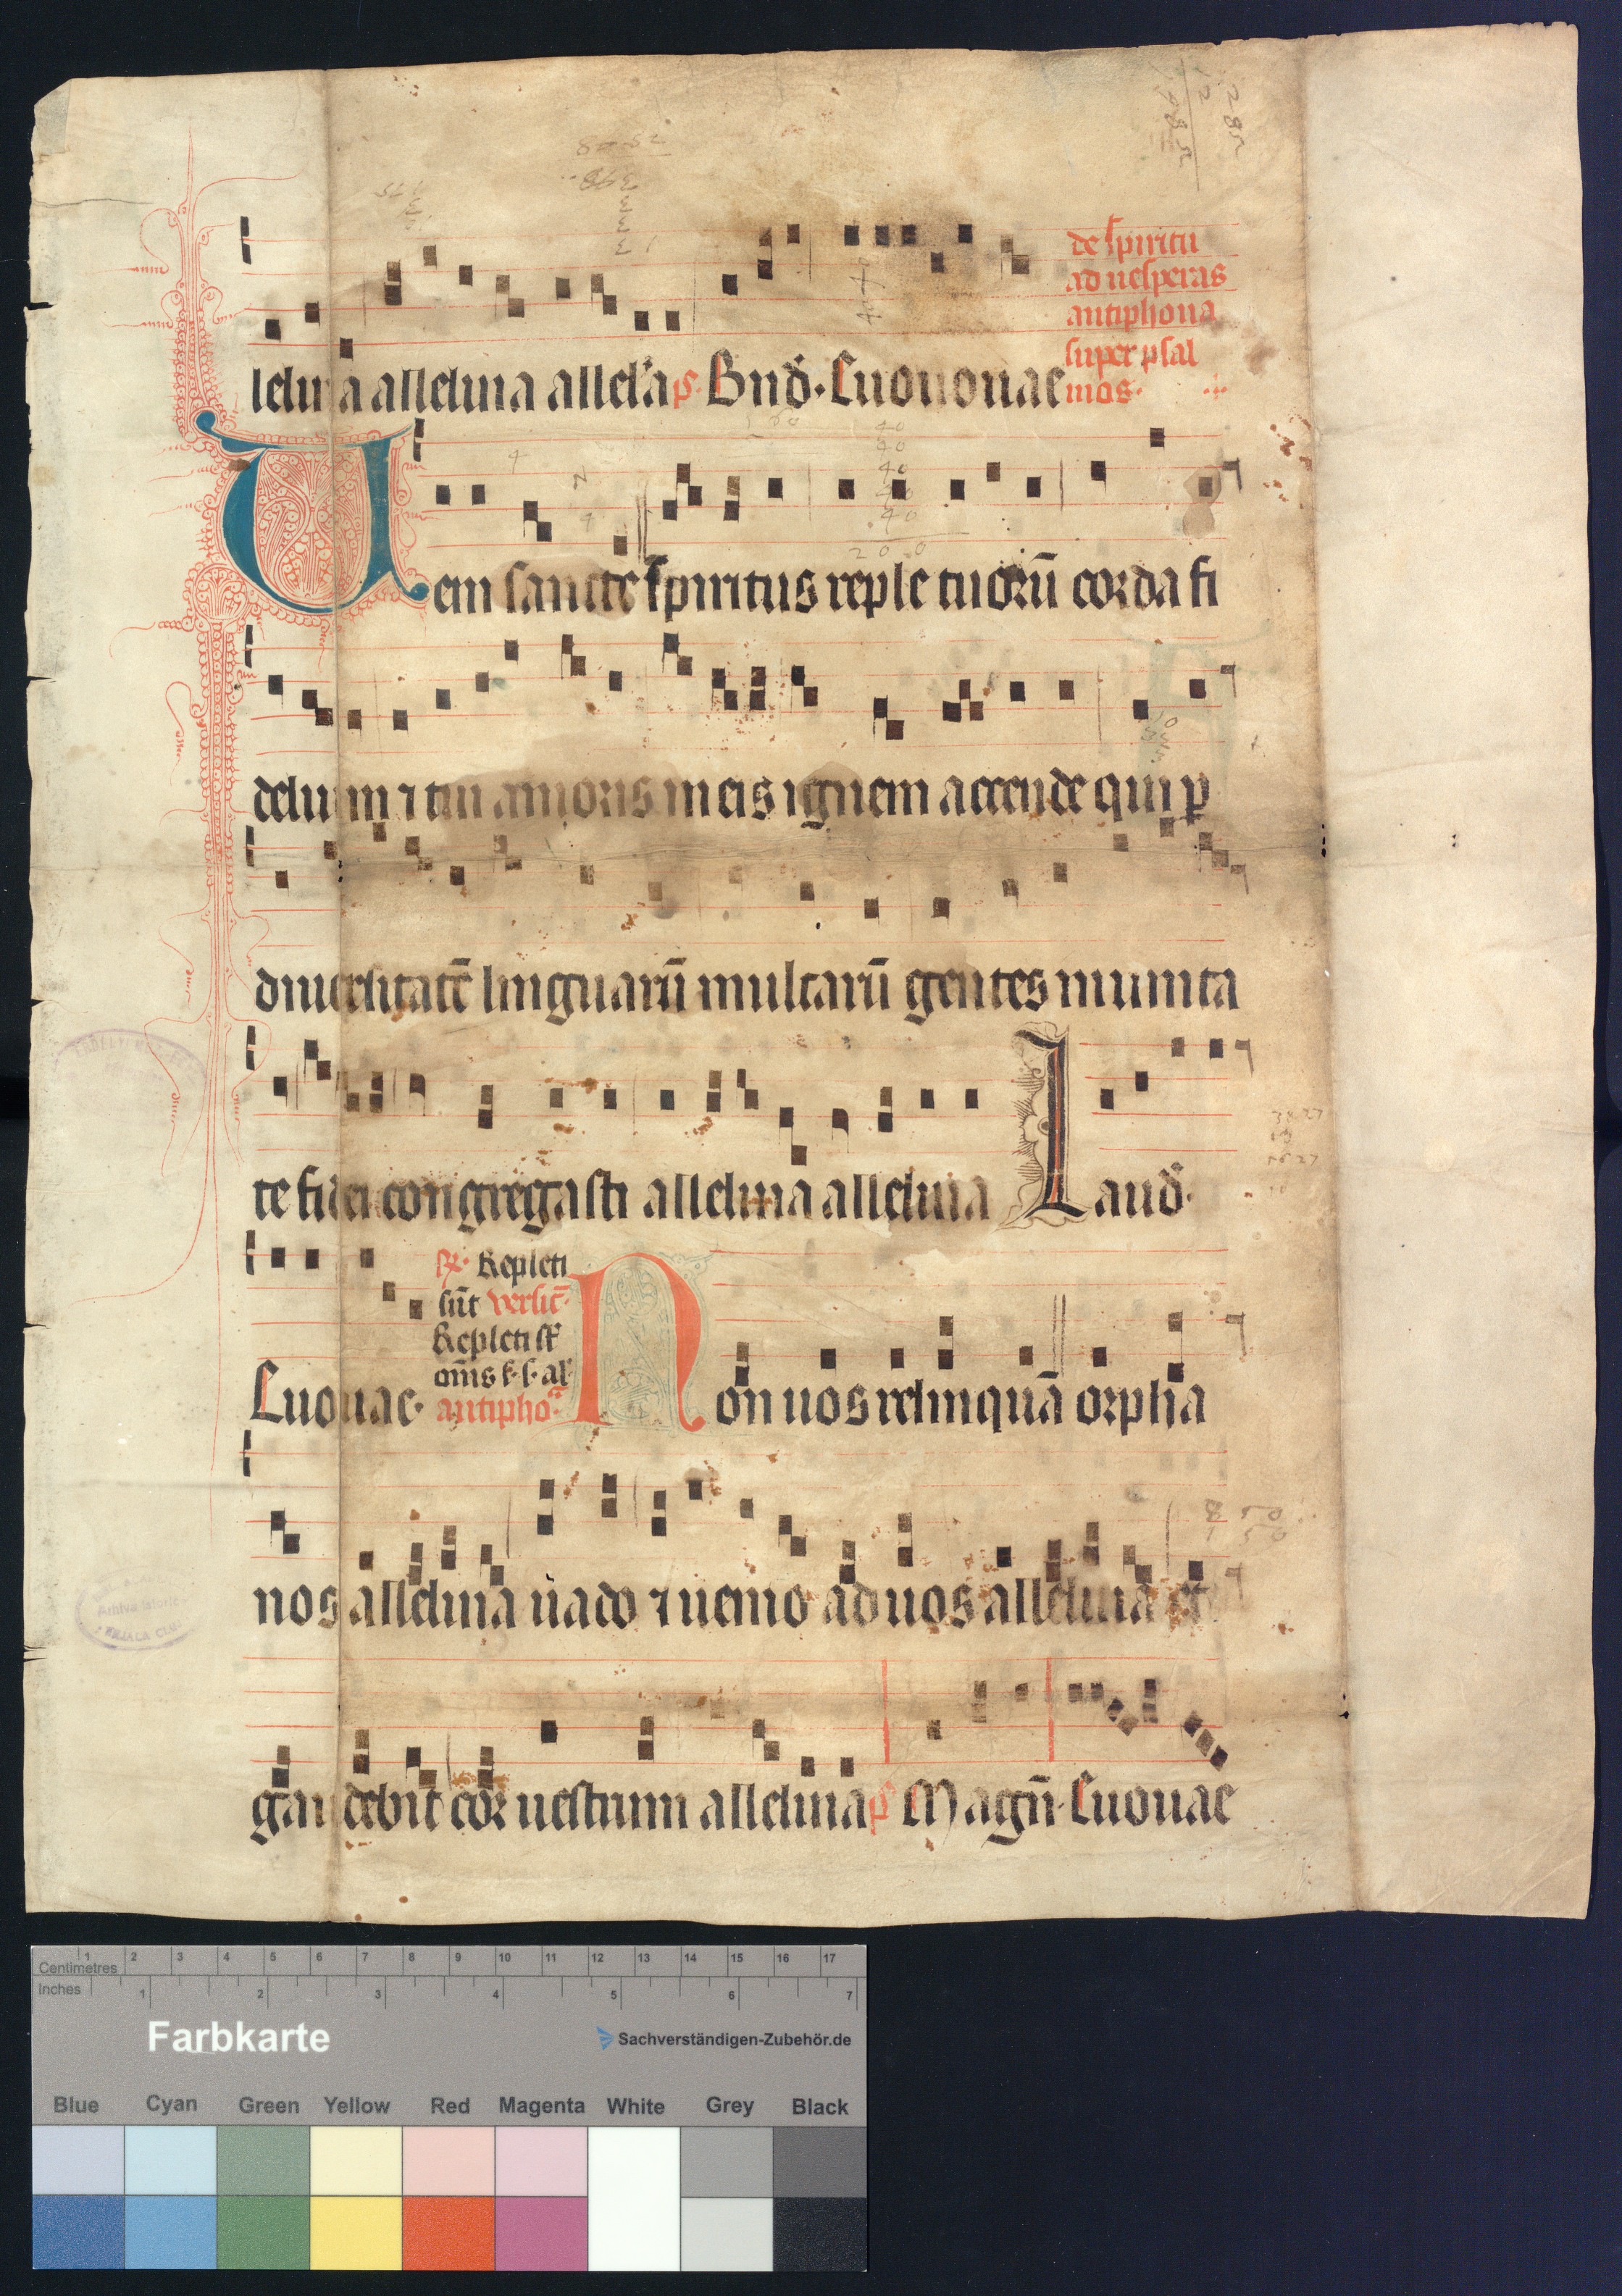 de spiritu
ad uesperas
antiphona
super psal
mos.
leluia alleluia allel'a ps. Bnd. Euouae
Ueni sancte spiritus reple tuorū corda fi
delium ⁊ tui amoris in eis ignem accende qui p
diuersitatē linguarū multarū gentes in unita
te fidei congregasti alleluia alleluia Laud.
Euouae.
℞. Repleti
sūt versic̄.
Repleti st̄
om̄s s. s. al'
antipho.
Non uos relinquā orpha
nos alleluia uado ⁊ uenio ad uos alleluia et
gaudebit cor uestrum alleluia ps Magn̄. Euouae
Centimetres 1 2 3 4 5 6 7 8 9 10 11 12 13 14 15 16 17
Inches 1 2 3 4 5 6 7
Farbkarte
Sachverständigen-Zubehör.de
Blue Cyan Green Yellow Red Magenta White Grey Black